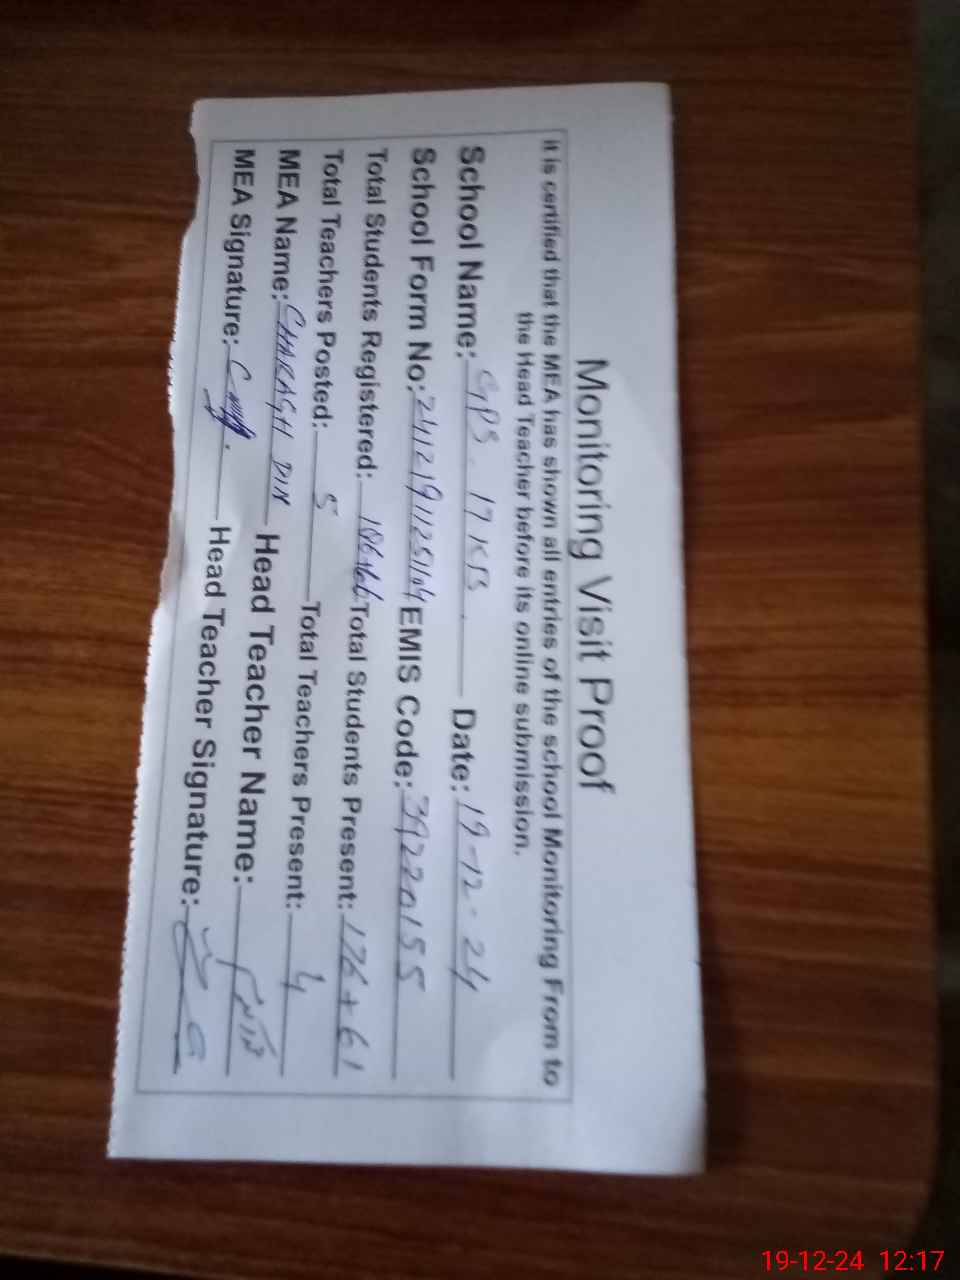 Monitoring Visit Proof
it is certified that the MEA has shown all entries of the school Monitoring From to
the Head Teacher before its online submission.
School Name: GPS. 17 KB. Date: 19-12-24
School Form No: EMIS Code: 39220155
Total Students Registered: Total Students Present: 176+61
Total Teachers Posted: 5 Total Teachers Present: 4
MEA Name: CHARAGH DIN Head Teacher Name:
MEA Signature: Head Teacher Signature:
19-12-24 12:17